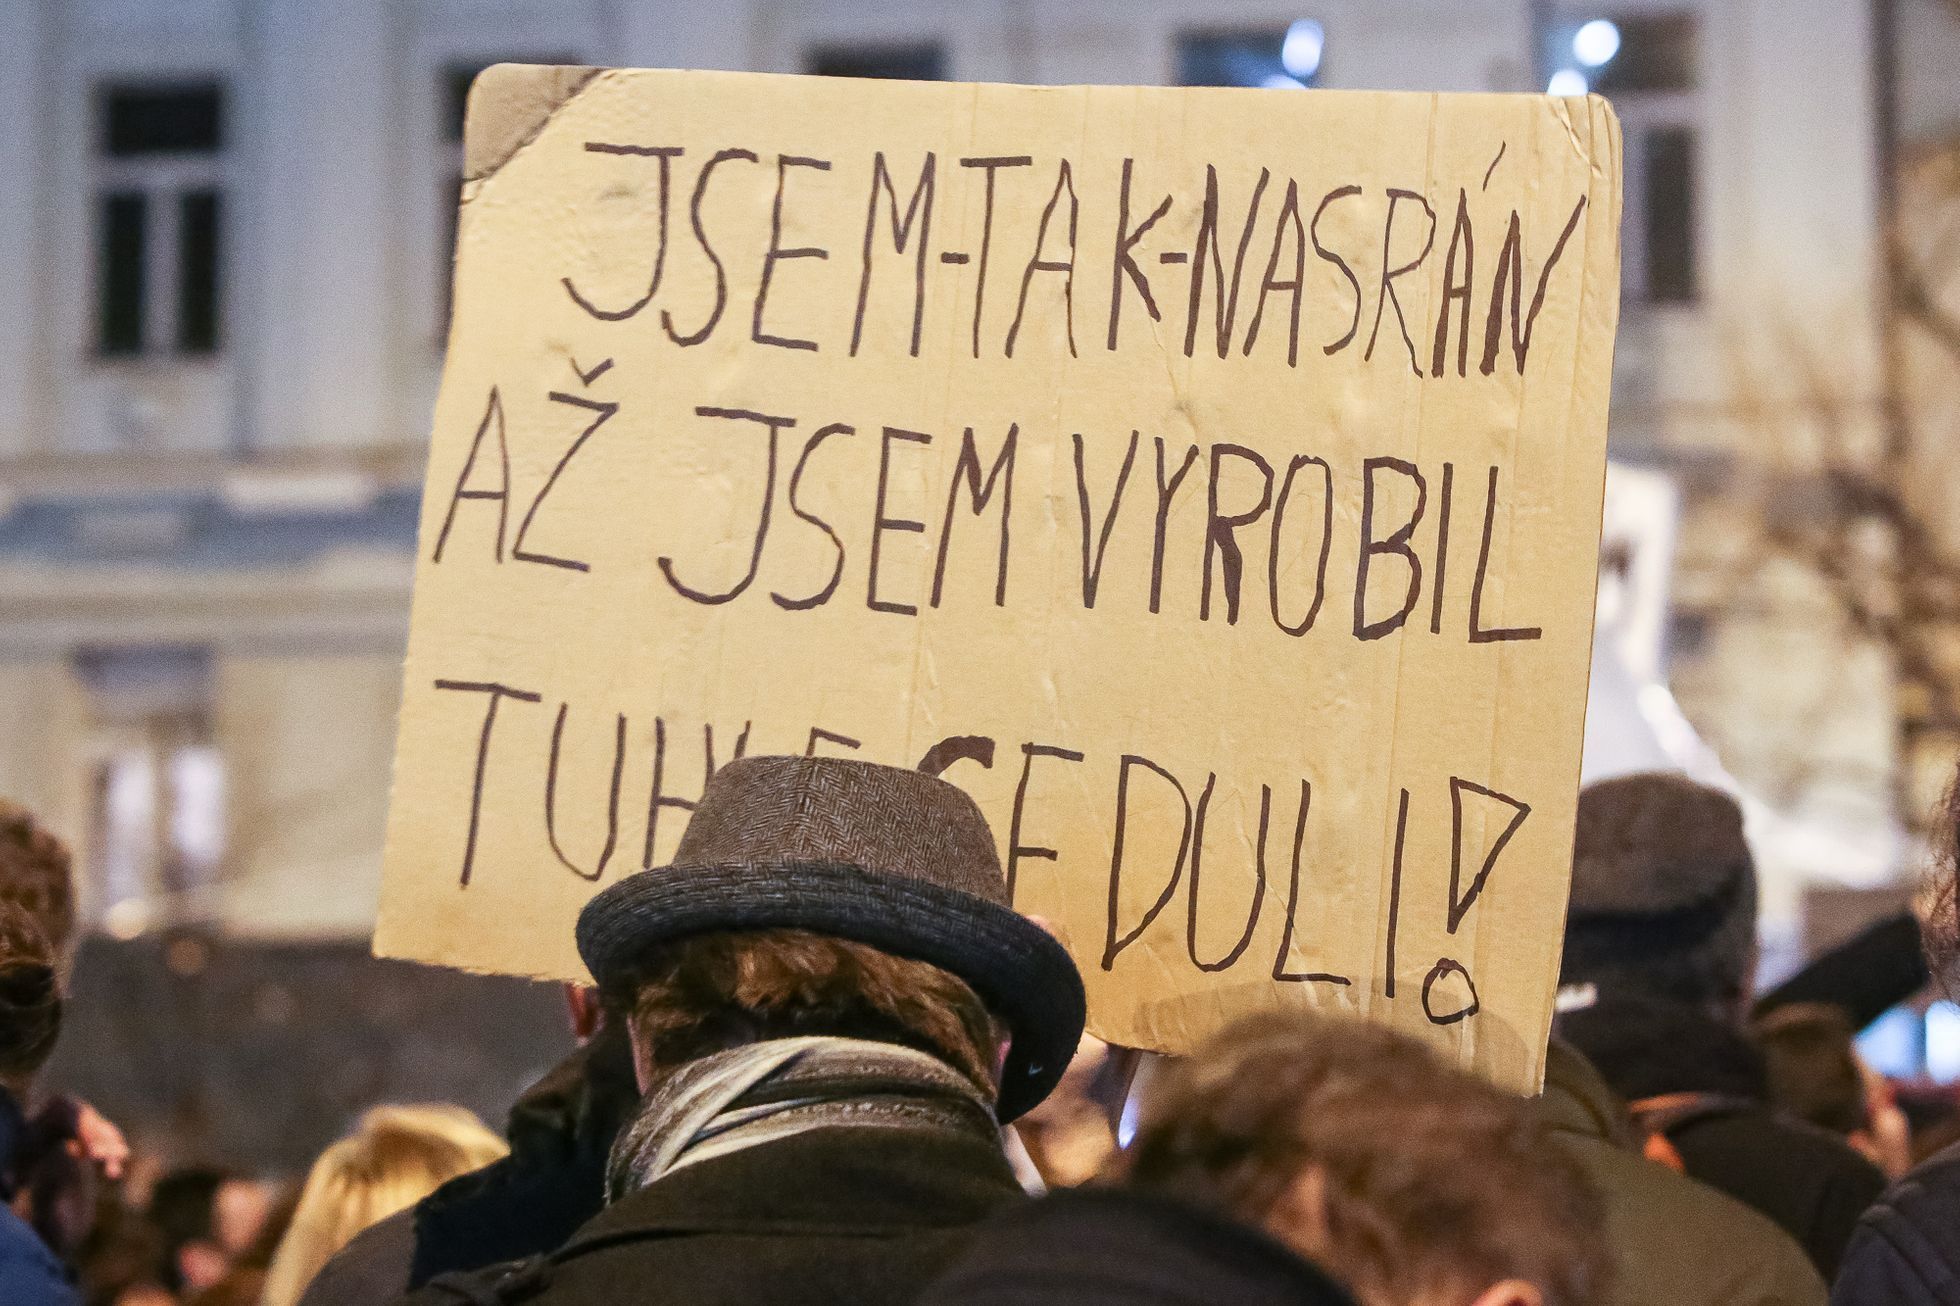 JSEM-TAK-NASRÁN
AŽ JSEM VYROBIL
TUHLE CEDULI!